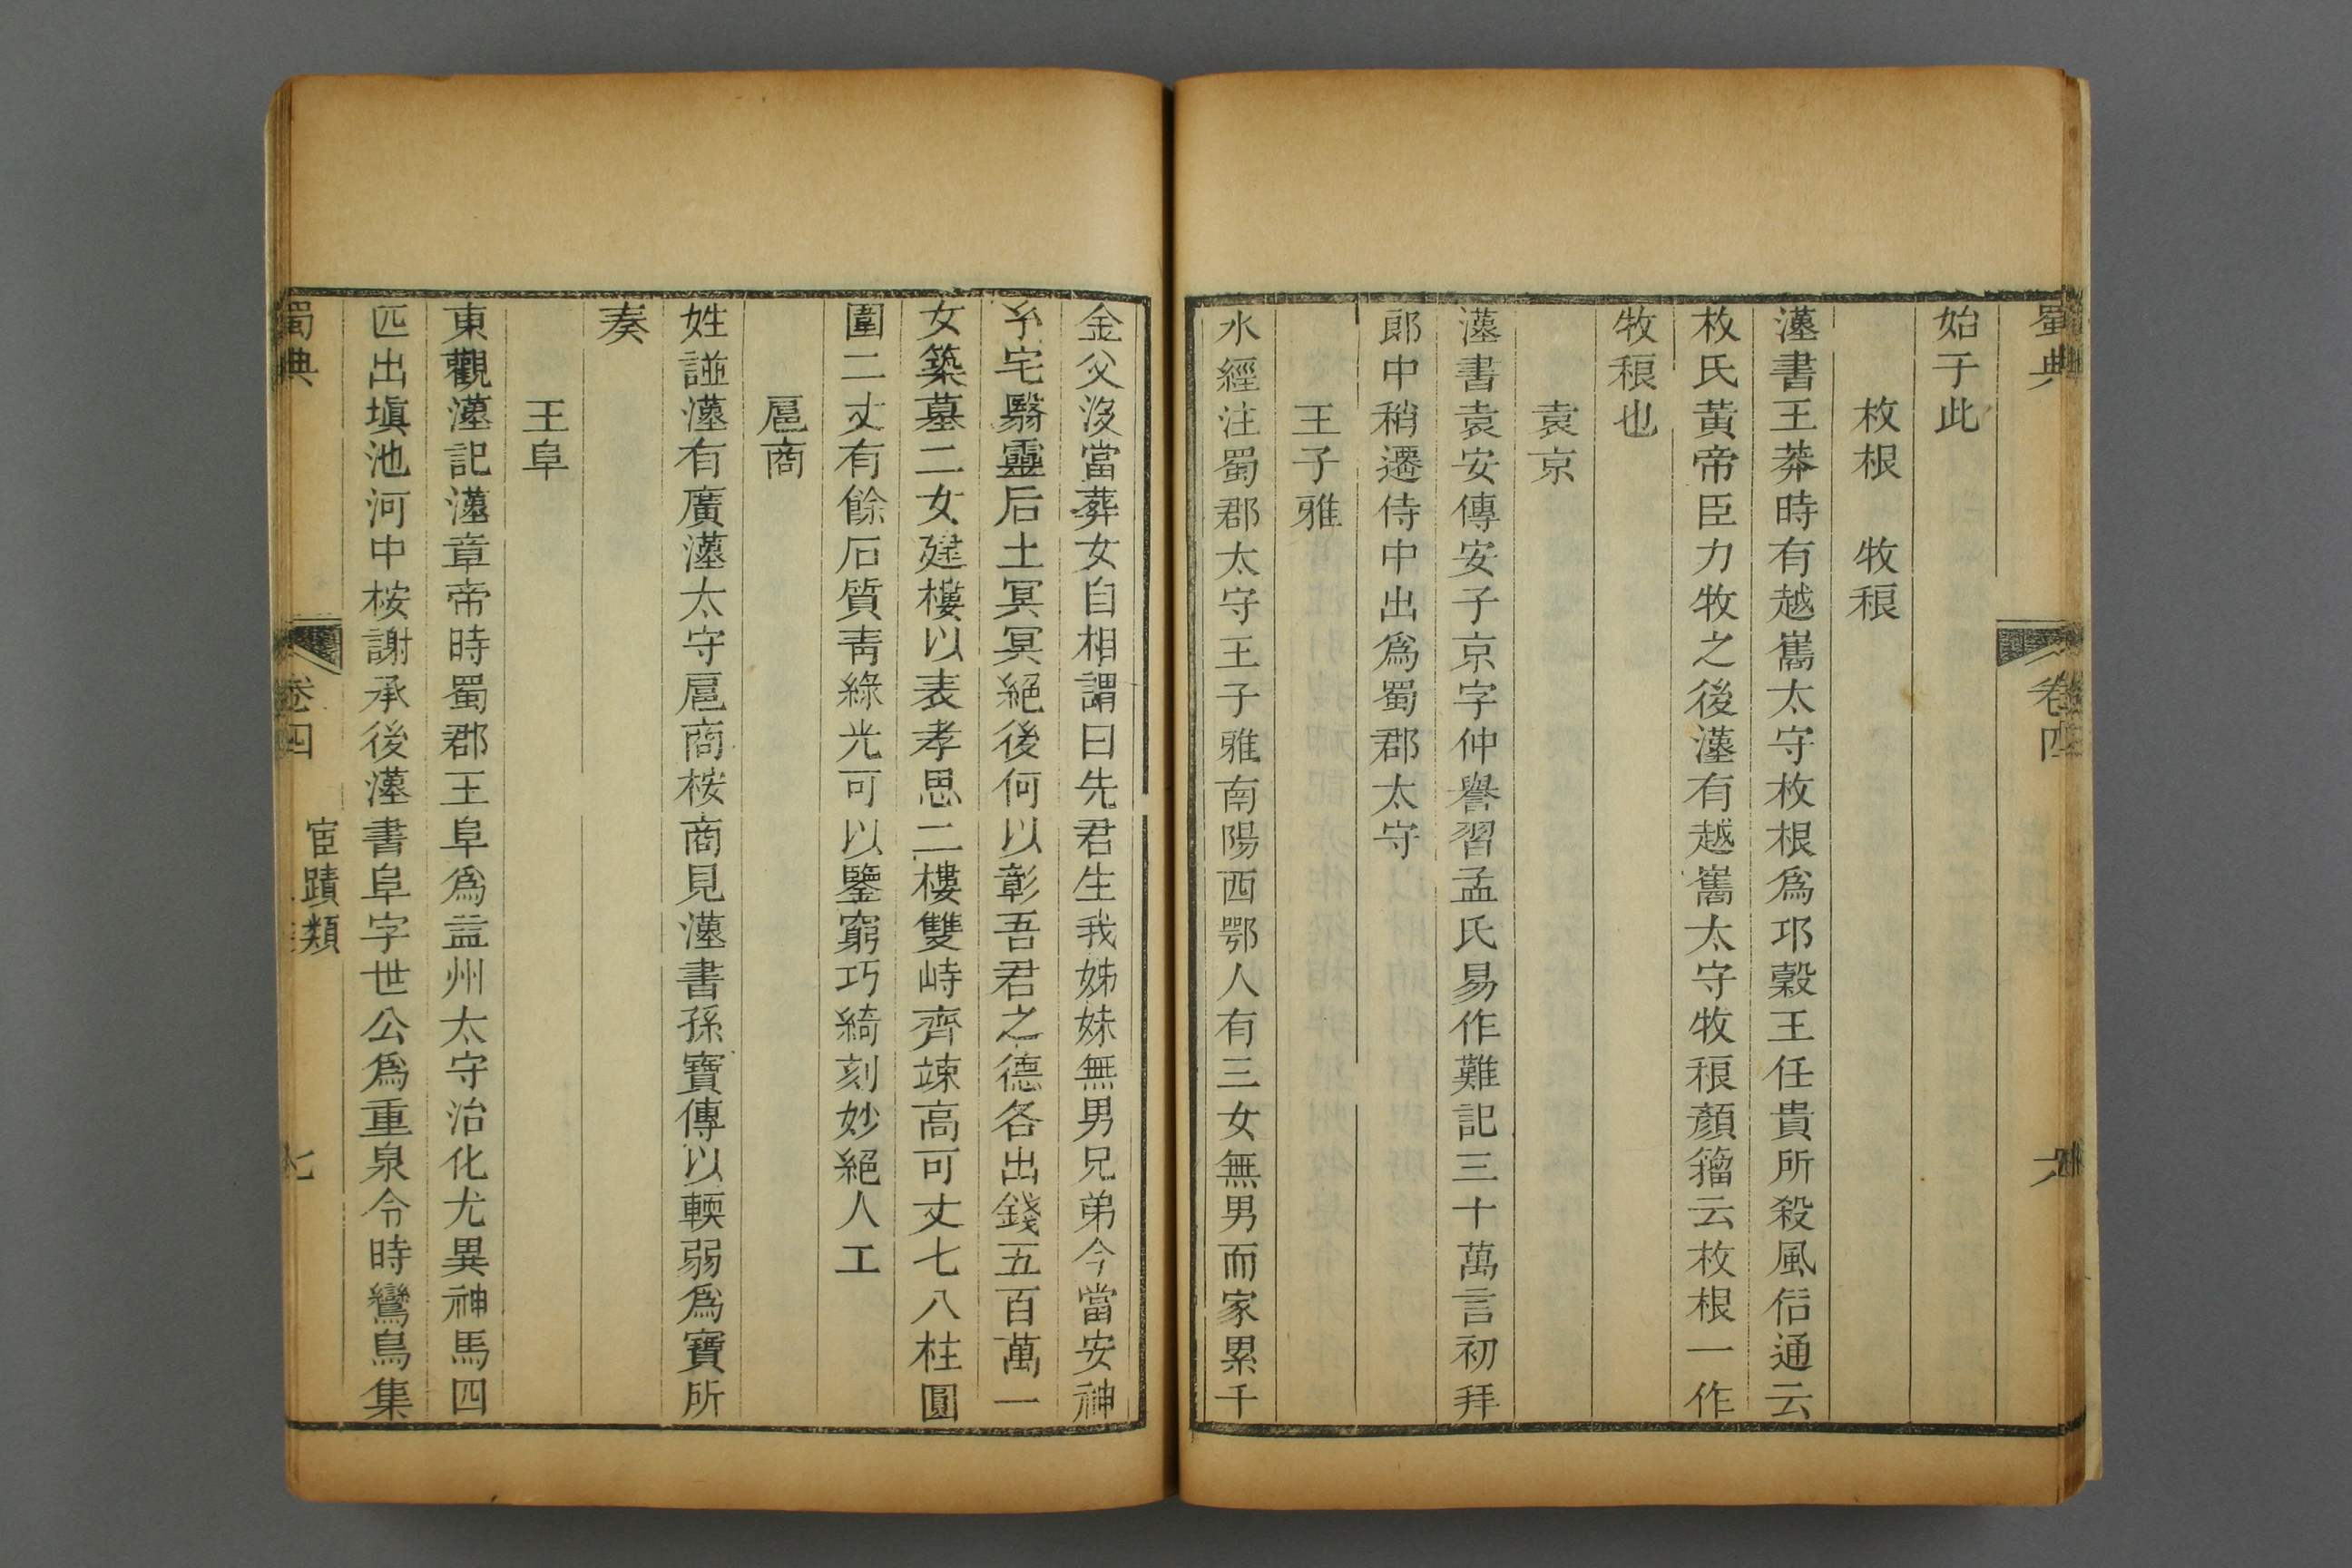 蜀典 卷四 六
始于此
枚根 牧稂
漢書王莽時有越嶲太守枚根為邛穀王任貴所殺風俗通云
枚氏黄帝臣力牧之後漢有越嶲太守牧稂顏籀云枚根一作
牧稂也
袁京
漢書袁安傳安子京字仲譽習孟氏易作難記三十萬言初拜
郎中稍遷侍中出為蜀郡太守
王子雅
水經注蜀郡太守王子雅南陽西鄂人有三女無男而家累千
金父沒當葬女自相謂曰先君生我姊妹無男兄弟今當安神
𤣥宅翳靈后土冥冥絕後何以彰吾君之德各出錢五百萬一
女築墓二女建樓以表孝思二樓雙峙齊竦高可丈七八柱圓
圍二丈有餘石質青綠光可以鑒窮巧綺刻妙絕人工
扈商
姓諡漢有廣漢太守扈商桉商見漢書孫寶傳以輭弱為寶所
奏
王阜
東觀漢記漢章帝時蜀郡王阜為益州太守治化尤異神馬四
匹出塡池河中桉謝承後漢書阜字世公為重泉令時鸞鳥集
蜀典 卷四 宦蹟類 七